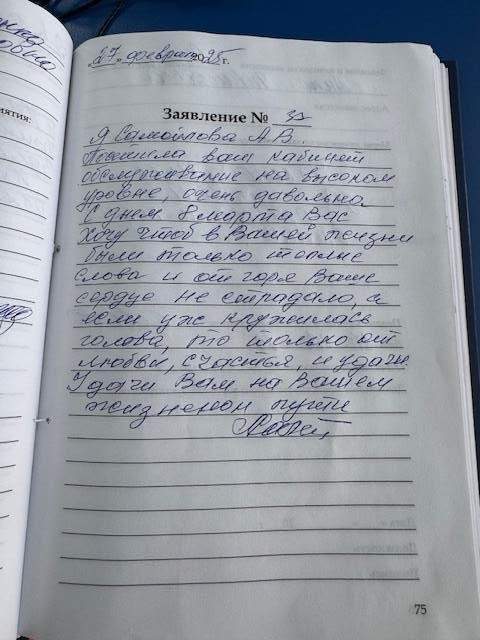 "27" февраля 2025 г.
Заявление № 31
Я Самойлова А.В.
Посетила ваш кабинет
обслуживание на высоком
уровне, очень давольна
С днем 8 марта Вас
Хочу чтоб в Вашей жизни
были только теплые
слова и от горя Ваше
сердце не страдало, а
если уж кружилась
голова, то только от
любви, счастья, и удачи.
Удачи Вам на Вашем
жизненом пути
75